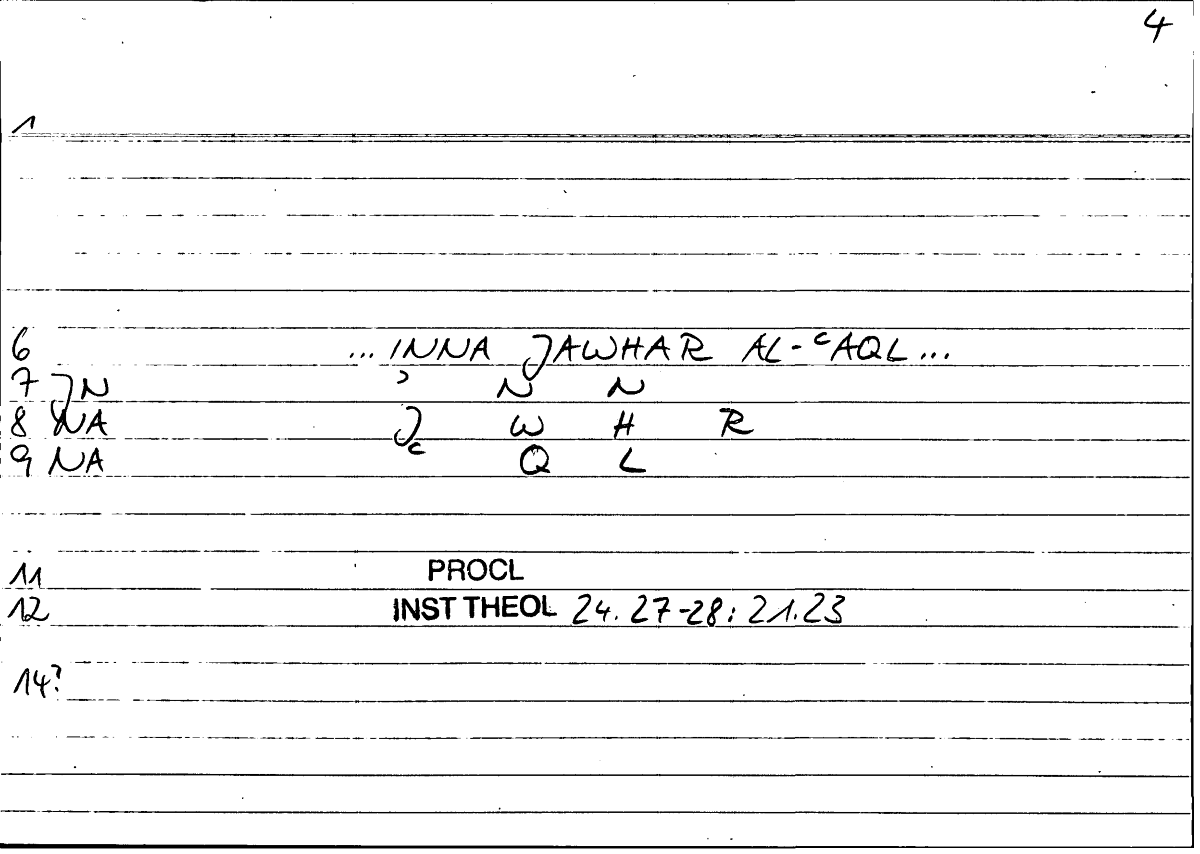 4
1
6 ... INNA JAWHAR AL-ᶜAQL ...
7 JN ʾ N N
8 NA J W H R
9 NA ᶜ Q L
11 PROCL
12 INST THEOL 24.27-28:21.23
14?